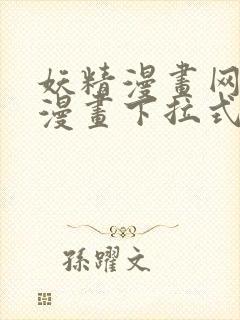 妖精漫畫网
漫畫下拉式
孫躍文